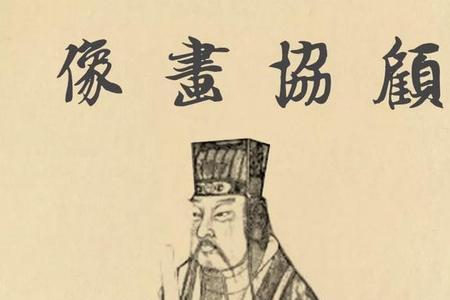 顧協畫像